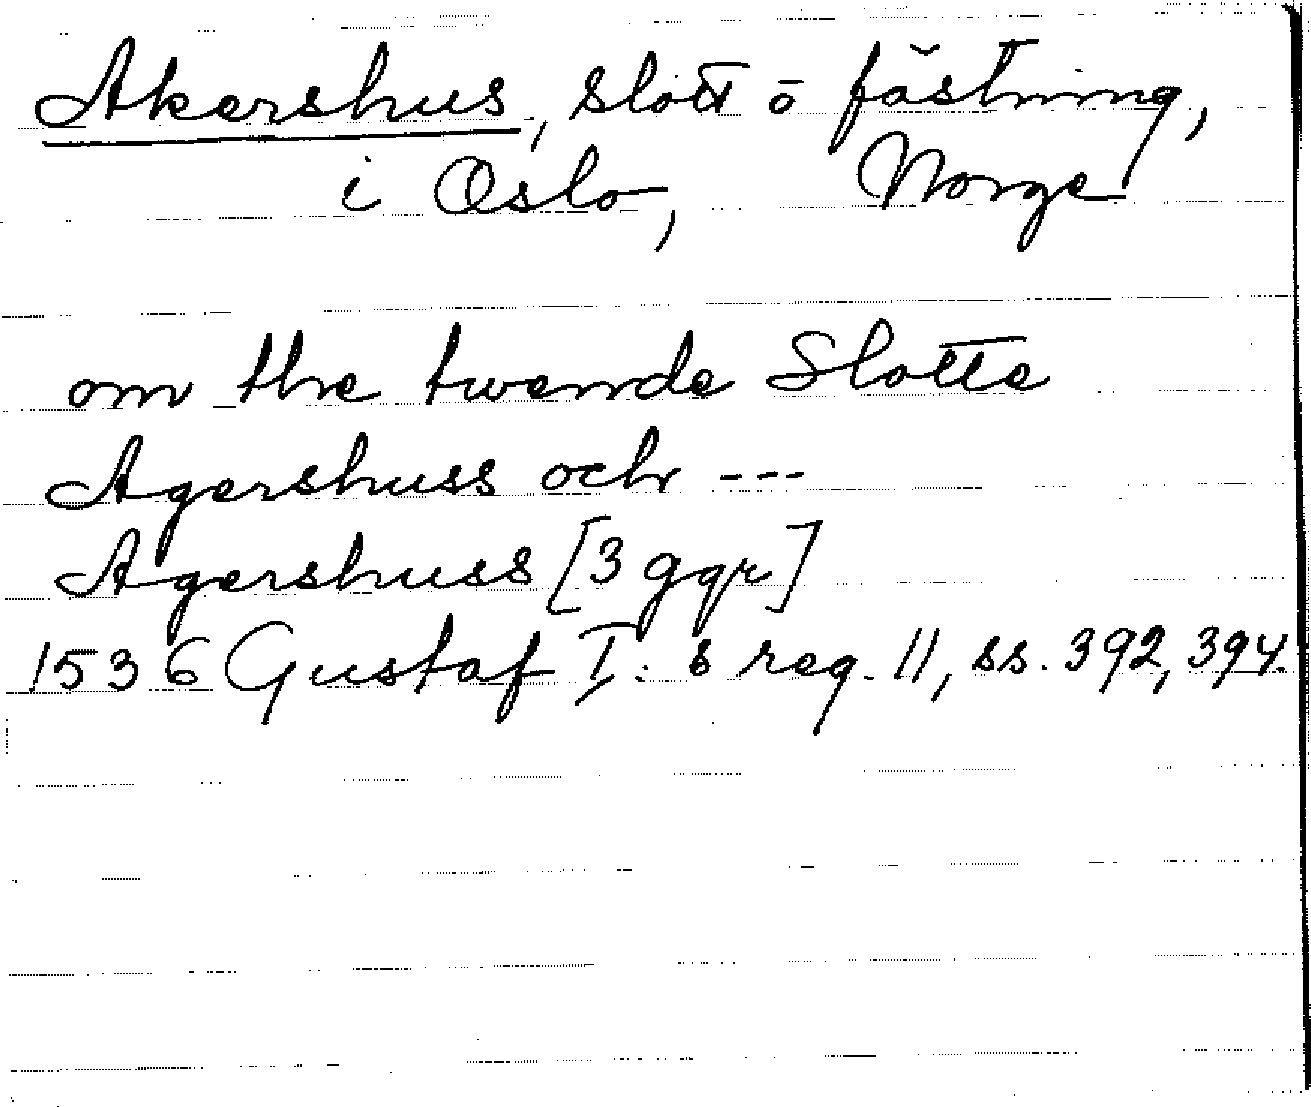 Akershus, slott o fästning,
i Oslo, Norge
om the twende Slotte
Agershuss och ---
Agershuss [3 ggr]
1536 Gustaf I:s reg. 11, ss. 392, 394.